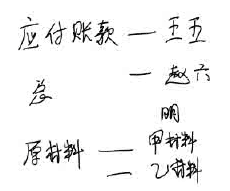 应付账款 — 王五
— 赵六
总
明
原材料 — 甲材料
— 乙材料